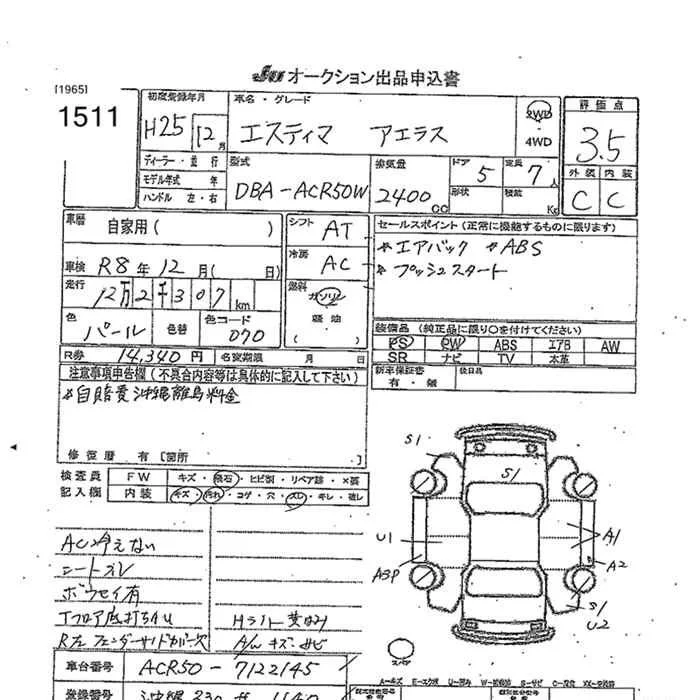 オークション出品申込書
[1965]
1511
初度登録年月
H25 12月
車名・グレード
エスティマ アエラス
2WD
4WD
評価点
3.5
外装 内装
C C
ディーラー・並行
モデル年式 年
ハンドル 左・右
型式
DBA-ACR50W
排気量
2400
CC
ドア 5
形状
定員 7人
積載 Kg
車歴 自家用( )
車検 R8年12月( 日)
走行 12万2千307km
色 パール 色替 カラーコード 070
シフト AT
冷房 AC
燃料 ガソリン
軽油
( )
セールスポイント(正常に機能するものに限ります)
*エアバック *ABS
*プッシュスタート
装備品(純正品に限り○を付けてください)
PS PW ABS エアB AW
SR ナビ TV 本革
新車保証書 後日品
有・無
R券 14,340円 名変期限 月 日
注意事項申告欄(不具合内容等は具体的に記入して下さい)
*自賠責沖縄離島料金
修復歴 有[箇所 ]
検査員
記入欄
FW キズ・飛石・ヒビ割・リペア跡・×要
内装 キズ・汚れ・コゲ・穴・スレ・キレ・破レ
AC冷えない
シートスレ
ボウセイ有
下フロア底打ち凹
R左フェンダーサイドカバー欠
Hライト黄ばみ
A/Wキズ・サビ
S1
S1
U1
A3P
A1
A2
S1
U2
スペア
車台番号 ACR50-7122145
登録番号 沖縄 330
A-キズ E-エクボ U-凹み W-補修跡 S-サビ C-腐食 XX-交換済